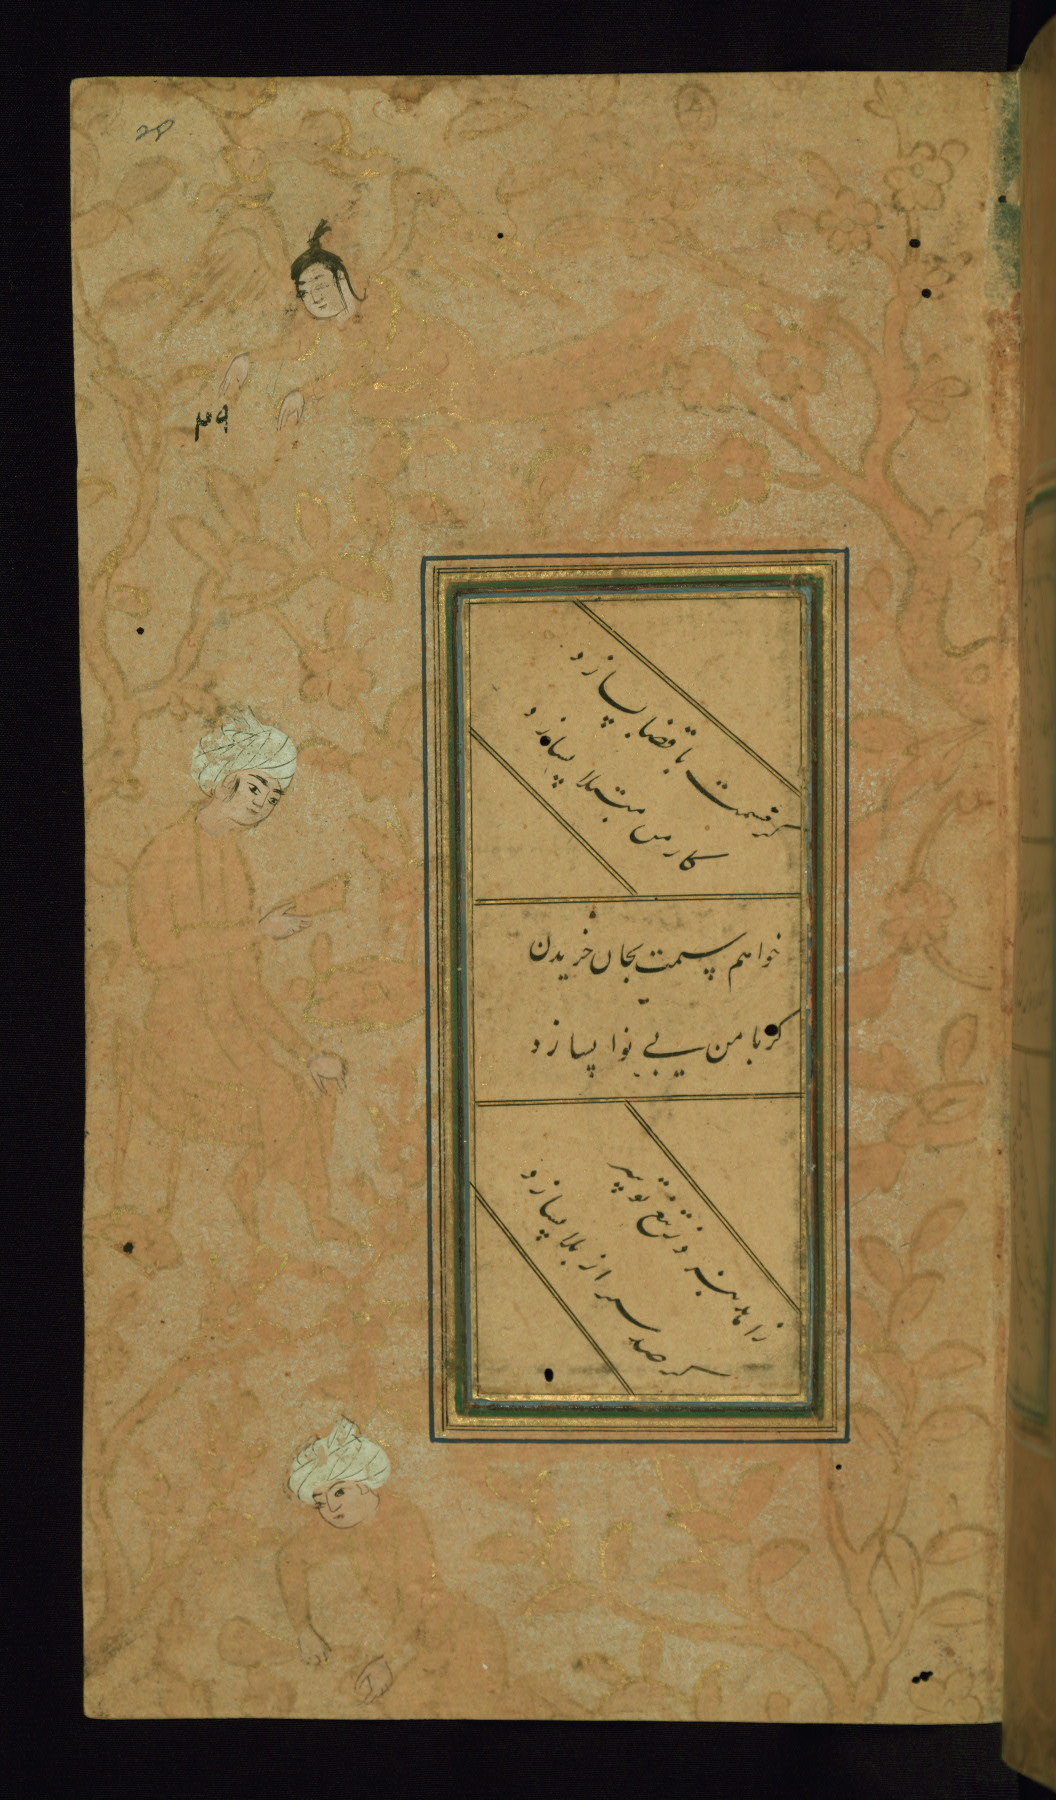 گر قسمت با قضا بسازد
کار من مبتلا بسازد
خواهم سمت بجان خریدن
گر با من بی نوا بسازد
زاهد بنه و ز تیغ تو سر
گر صد سر از بلا بسازد
۲۹